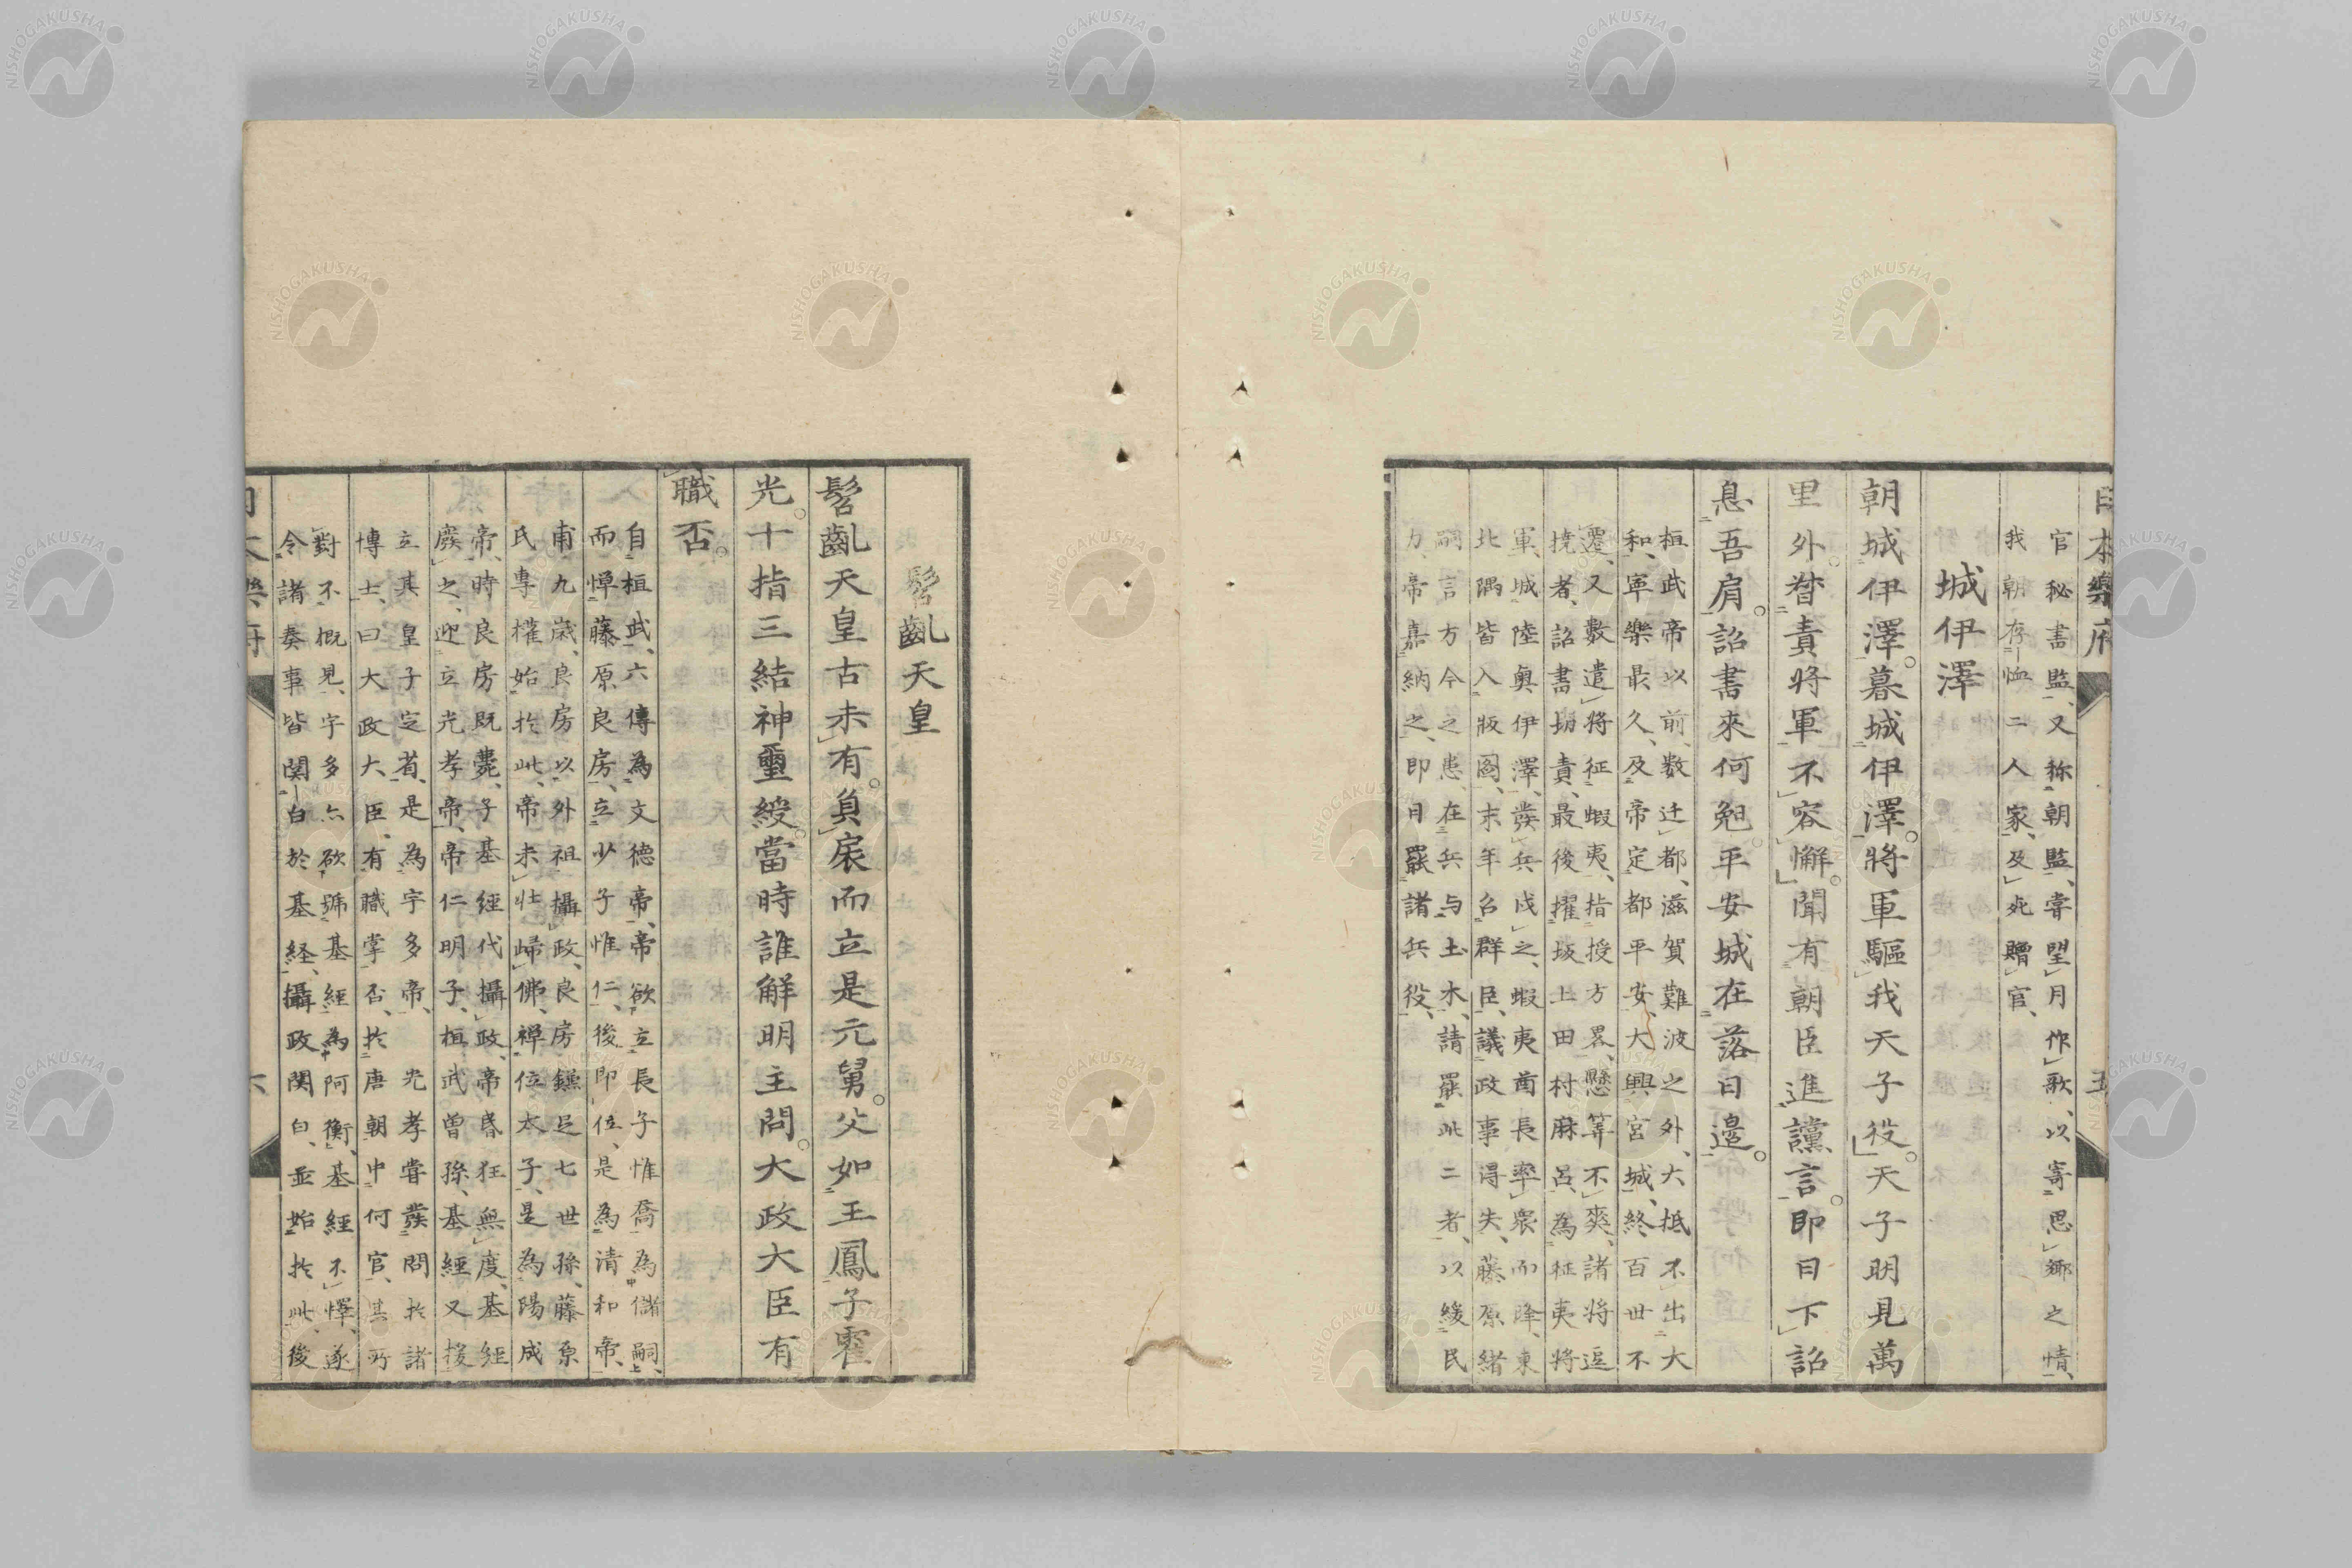 日本樂府
五
官秘書監、又称朝監、嘗望月作歌、以寄思郷之情、
我朝存恤二人家、及死贈官、
城伊澤
朝城伊澤。暮城伊澤。將軍驅我天子役。天子明見萬
里外。督責將軍不容懈。聞有朝臣進讜言。即日下詔
息吾肩。詔書來何晩平安城在落日邊。
桓武帝以前、数迁都、滋賀難波之外、大抵不出大
和、寧樂最久、及帝定都平安、大興宮城、終百世不
遷、又數遣將征蝦夷、指授方畧、懸等不爽、諸將逗
撓者、詔書切責、最後擢坂上田村麻呂、為征夷將
軍、城陸奥伊澤、發兵戍之、蝦夷酋長率衆而降、東
北隅皆入版圖、末年召群臣、議政事得失、藤原緒
嗣言方今之患、在兵与土木、請罷此二者、以緩民
力、帝嘉納之、即日罷諸兵役、
髫齔天皇
髫齔天皇古未有。負扆而立是元舅。父如王鳳子霍
光。十指三結神璽綬。當時誰解明主問。大政大臣有
職否。
自桓武、六傳為文德帝、帝欲立長子惟喬為儲嗣、
而憚藤原良房、立少子惟仁、後即位、是為清和帝、
甫九歳、良房以外祖攝政、良房鎌足七世孫、藤原
氏專権始於此、帝未壮歸佛、禅位太子、是為陽成
帝、時良房既薨、子基經代攝政、帝昏狂無度、基經
廢之、迎立光孝帝、帝仁明子、桓武曽孫、基經又援
立其皇子定省、是為宇多帝、光孝嘗發問於諸
博士、曰大政大臣、有職掌否、於唐朝中何官、其所
對不概見、宇多亦欲號基經為阿衡、基經不懌、遂
令諸奏事皆関白於基経、攝政関白、並始於此、後
日本樂府
六